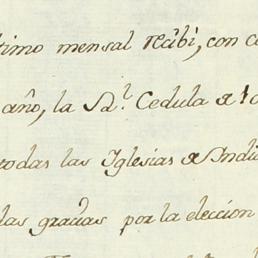 timo mensal recibi, con
año, la Rl. Cedula de
todas las Iglesias de Indi
las gracias por la eleccion